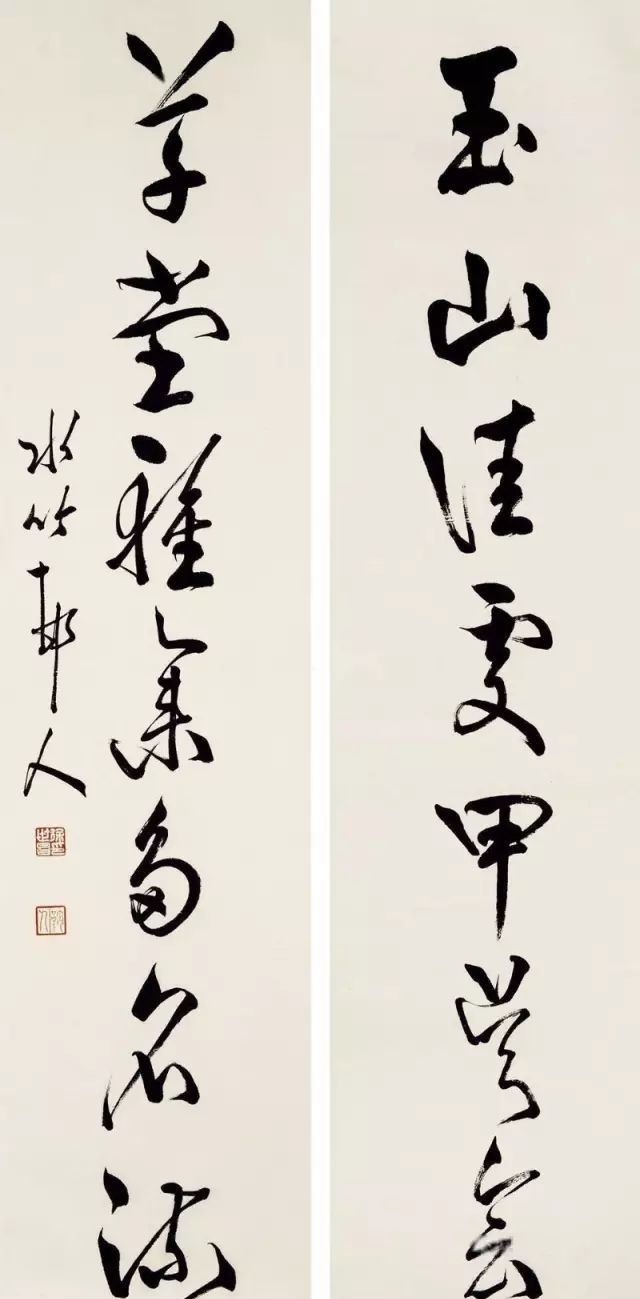 玉山佳處甲吳會
草堂雅集多名流
水竹邨人